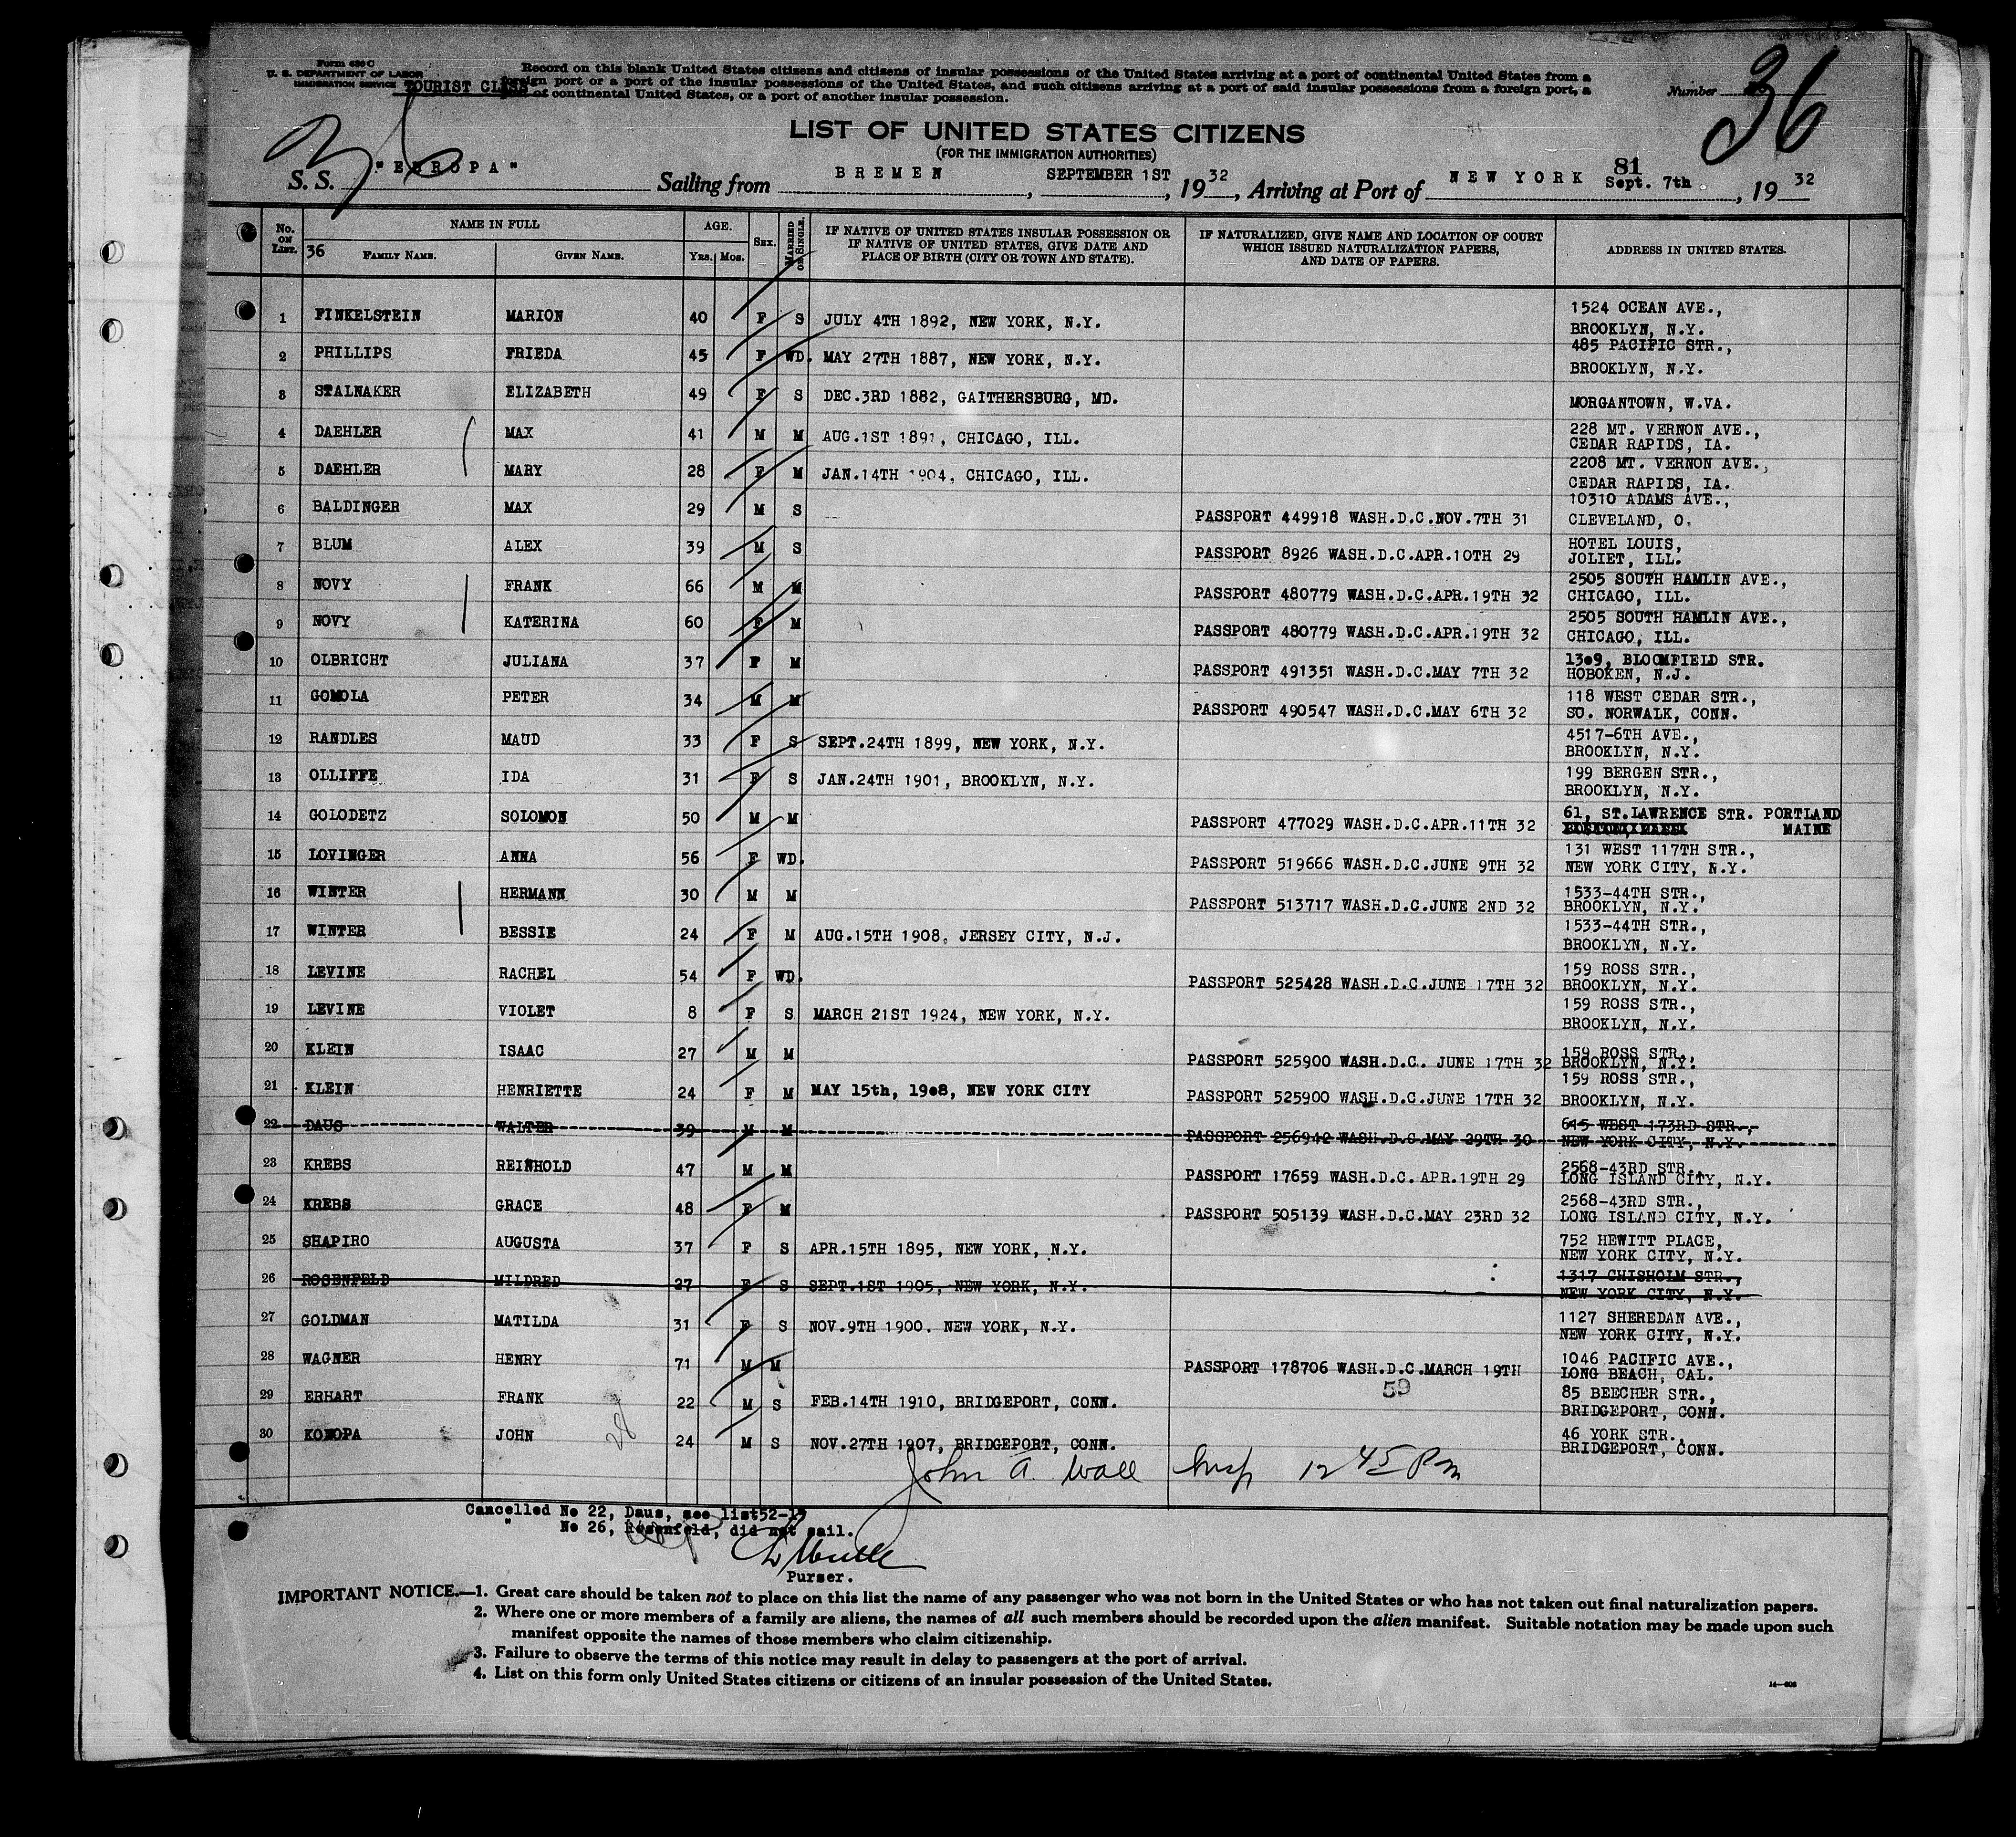 Form 630 C
U. S. DEPARTMENT OF LABOR
IMMIGRATION SERVICE
TOURIST CLASS
Record on this blank United States citizens and citizens of insular possessions of the United States arriving at a port of continental United States from a
foreign port or a port of the insular possessions of the United States, and such citizens arriving at a port of said insular possessions from a foreign port, a
port of continental United States, or a port of another insular possession.
Number 36
LIST OF UNITED STATES CITIZENS
(FOR THE IMMIGRATION AUTHORITIES)
S. S. "EUROPA" Sailing from BREMEN, SEPTEMBER 1ST, 1932, Arriving at Port of NEW YORK 81 Sept. 7th, 1932
No. ON LIST. 36 NAME IN FULL FAMILY NAME. GIVEN NAME. AGE. YRS. MOS. SEX. MARRIED OR SINGLE. IF NATIVE OF UNITED STATES INSULAR POSSESSION OR IF NATIVE OF UNITED STATES, GIVE DATE AND PLACE OF BIRTH (CITY OR TOWN AND STATE). IF NATURALIZED, GIVE NAME AND LOCATION OF COURT WHICH ISSUED NATURALIZATION PAPERS, AND DATE OF PAPERS. ADDRESS IN UNITED STATES.
1 FINKELSTEIN MARION 40 F S JULY 4TH 1892, NEW YORK, N.Y. 1524 OCEAN AVE., BROOKLYN, N.Y.
2 PHILLIPS FRIEDA 45 F WD. MAY 27TH 1887, NEW YORK, N.Y. 485 PACIFIC STR., BROOKLYN, N.Y.
3 STALNAKER ELIZABETH 49 F S DEC.3RD 1882, GAITHERSBURG, MD. MORGANTOWN, W.VA.
4 DAEHLER MAX 41 M M AUG.1ST 1891, CHICAGO, ILL. 228 MT. VERNON AVE., CEDAR RAPIDS, IA.
5 DAEHLER MARY 28 F M JAN.14TH 1904, CHICAGO, ILL. 2208 MT. VERNON AVE., CEDAR RAPIDS, IA.
6 BALDINGER MAX 29 M S PASSPORT 449918 WASH.D.C.NOV.7TH 31 10310 ADAMS AVE., CLEVELAND, O.
7 BLUM ALEX 39 M S PASSPORT 8926 WASH.D.C.APR.10TH 29 HOTEL LOUIS, JOLIET, ILL.
8 NOVY FRANK 66 M M PASSPORT 480779 WASH.D.C.APR.19TH 32 2505 SOUTH HAMLIN AVE., CHICAGO, ILL.
9 NOVY KATERINA 60 F M PASSPORT 480779 WASH.D.C.APR.19TH 32 2505 SOUTH HAMLIN AVE., CHICAGO, ILL.
10 OLBRICHT JULIANA 37 F M PASSPORT 491351 WASH.D.C.MAY 7TH 32 1309, BLOOMFIELD STR. HOBOKEN, N.J.
11 GOMOLA PETER 34 M M PASSPORT 490547 WASH.D.C.MAY 6TH 32 118 WEST CEDAR STR., SO. NORWALK, CONN.
12 RANDLES MAUD 33 F S SEPT.24TH 1899, NEW YORK, N.Y. 4517-6TH AVE., BROOKLYN, N.Y.
13 OLLIFFE IDA 31 F S JAN.24TH 1901, BROOKLYN, N.Y. 199 BERGEN STR., BROOKLYN, N.Y.
14 GOLODETZ SOLOMON 50 M M PASSPORT 477029 WASH.D.C.APR.11TH 32 61, ST.LAWRENCE STR. PORTLAND MAINE
15 LOVINGER ANNA 56 F WD. PASSPORT 519666 WASH.D.C.JUNE 9TH 32 131 WEST 117TH STR., NEW YORK CITY, N.Y.
16 WINTER HERMANN 30 M M PASSPORT 513717 WASH.D.C.JUNE 2ND 32 1533-44TH STR., BROOKLYN, N.Y.
17 WINTER BESSIE 24 F M AUG.15TH 1908, JERSEY CITY, N.J. 1533-44TH STR., BROOKLYN, N.Y.
18 LEVINE RACHEL 54 F WD. PASSPORT 525428 WASH.D.C.JUNE 17TH 32 159 ROSS STR., BROOKLYN, N.Y.
19 LEVINE VIOLET 8 F S MARCH 21ST 1924, NEW YORK, N.Y. 159 ROSS STR., BROOKLYN, N.Y.
20 KLEIN ISAAC 27 M M PASSPORT 525900 WASH.D.C. JUNE 17TH 32 159 ROSS STR., BROOKLYN, N.Y.
21 KLEIN HENRIETTE 24 F M MAY 15th, 1908, NEW YORK CITY PASSPORT 525900 WASH.D.C.JUNE 17TH 32 159 ROSS STR., BROOKLYN, N.Y.
22 DAUS WALTER 39 M M PASSPORT 256942 WASH.D.C.MAY 29TH 30 615 WEST 173RD STR., NEW YORK CITY, N.Y.
23 KREBS REINHOLD 47 M M PASSPORT 17659 WASH.D.C. APR.19TH 29 2568-43RD STR., LONG ISLAND CITY, N.Y.
24 KREBS GRACE 48 F M PASSPORT 505139 WASH.D.C.MAY 23RD 32 2568-43RD STR., LONG ISLAND CITY, N.Y.
25 SHAPIRO AUGUSTA 37 F S APR.15TH 1895, NEW YORK, N.Y. 752 HEWITT PLACE, NEW YORK CITY, N.Y.
26 ROSENFELD MILDRED 27 F S SEPT.1ST 1905, NEW YORK, N.Y. 1317 CHISHOLM STR., NEW YORK CITY, N.Y.
27 GOLDMAN MATILDA 31 F S NOV.9TH 1900, NEW YORK, N.Y. 1127 SHEREDAN AVE., NEW YORK CITY, N.Y.
28 WAGNER HENRY 71 M M PASSPORT 178706 WASH.D.C.MARCH 19TH 59 1046 PACIFIC AVE., LONG BEACH, CAL.
29 ERHART FRANK 22 M S FEB.14TH 1910, BRIDGEPORT, CONN. 85 BEECHER STR., BRIDGEPORT, CONN.
30 KONOPA JOHN 24 M S NOV.27TH 1907, BRIDGEPORT, CONN. 46 YORK STR., BRIDGEPORT, CONN.
28
John A. Wall Insp 12 45 Pm
Cancelled No 22, Daus, see list52-17
" No 26, Rosenfeld, did not sail.
Purser.
IMPORTANT NOTICE.—1. Great care should be taken not to place on this list the name of any passenger who was not born in the United States or who has not taken out final naturalization papers.
2. Where one or more members of a family are aliens, the names of all such members should be recorded upon the alien manifest. Suitable notation may be made upon such
manifest opposite the names of those members who claim citizenship.
3. Failure to observe the terms of this notice may result in delay to passengers at the port of arrival.
4. List on this form only United States citizens or citizens of an insular possession of the United States.